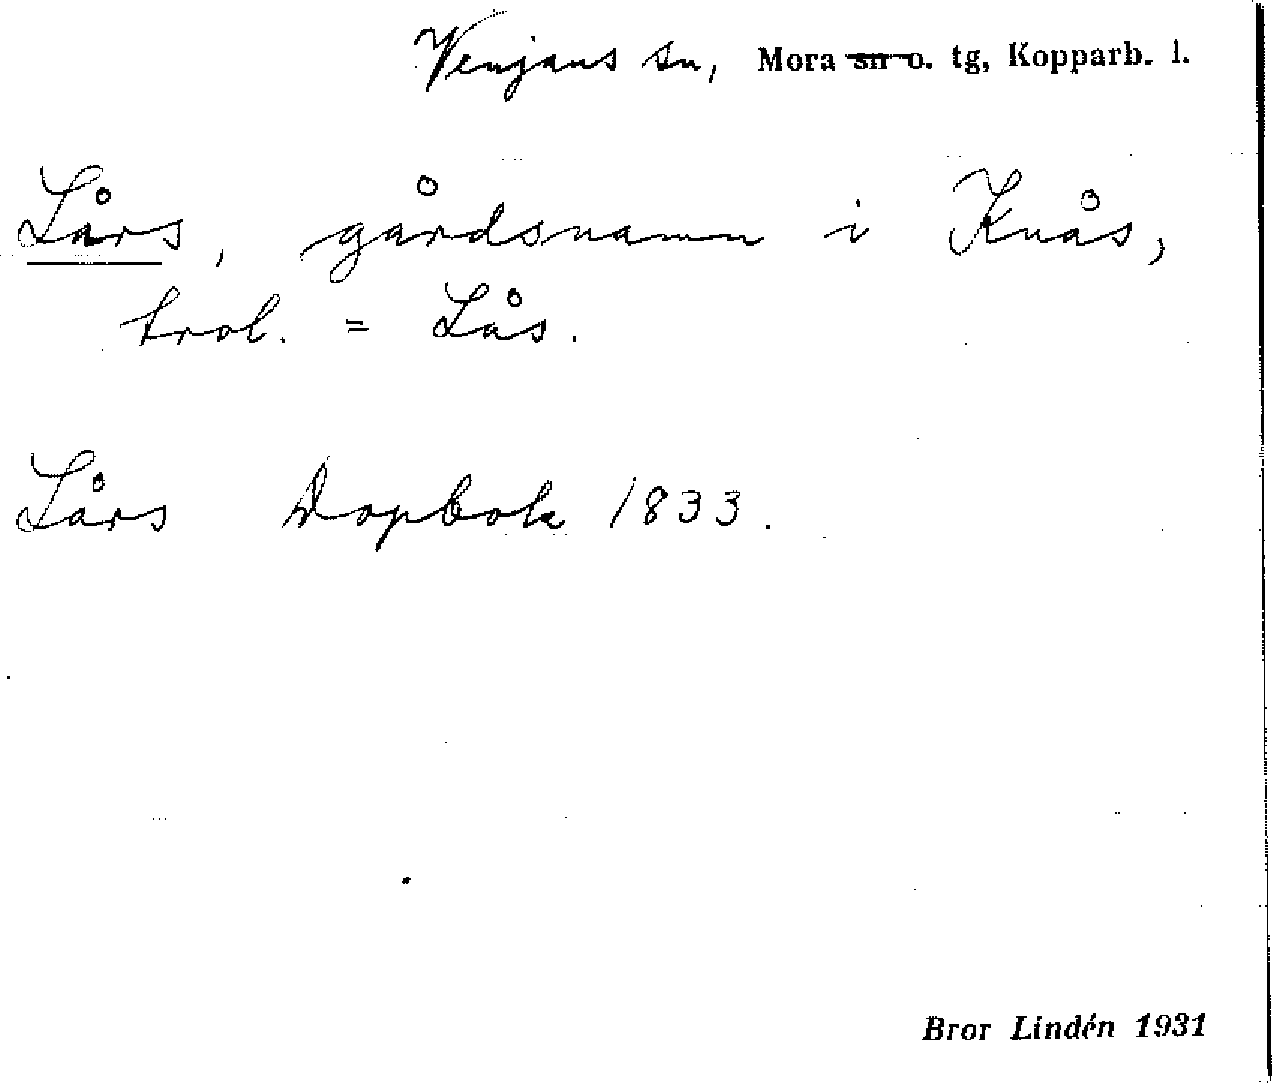 Venjans sn, Mora sn o. tg, Kopparb. l.
Lårs, gårdsnamn i Knås,
trol. = Lås.
Lårs Dopbok 1833.
Bror Lindén 1931